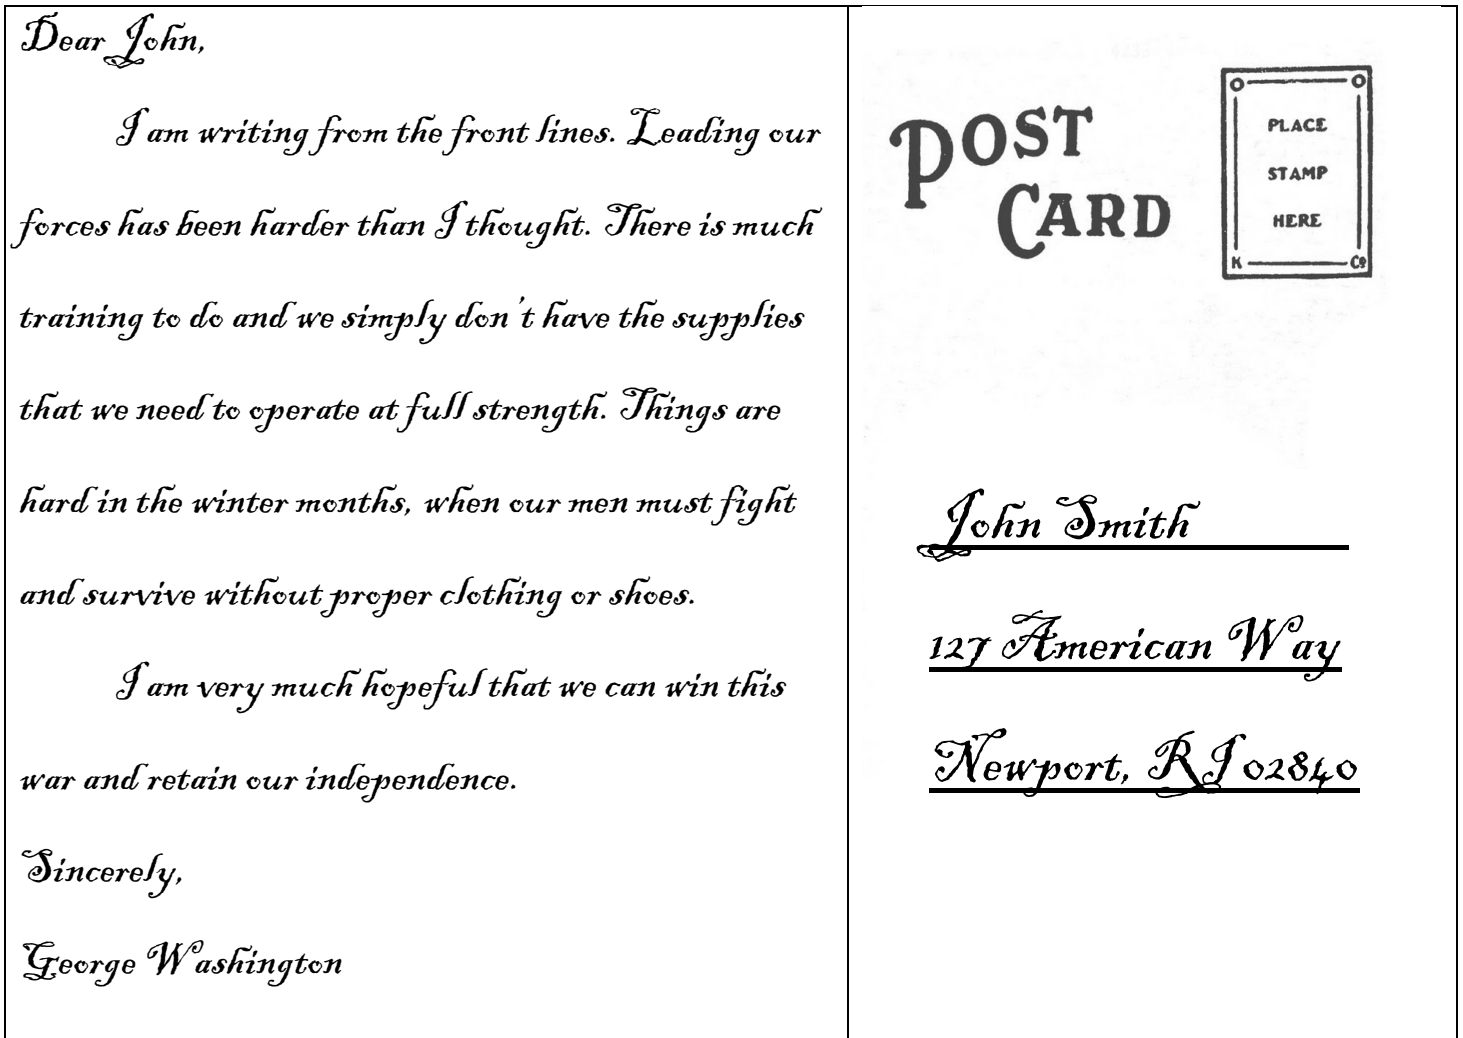 Dear John,
I am writing from the front lines. Leading our
forces has been harder than I thought. There is much
training to do and we simply don't have the supplies
that we need to operate at full strength. Things are
hard in the winter months, when our men must fight
and survive without proper clothing or shoes.
I am very much hopeful that we can win this
war and retain our independence.
Sincerely,
George Washington
POST
CARD
PLACE
STAMP
HERE
K Co
John Smith
127 American Way
Newport, RI 02840